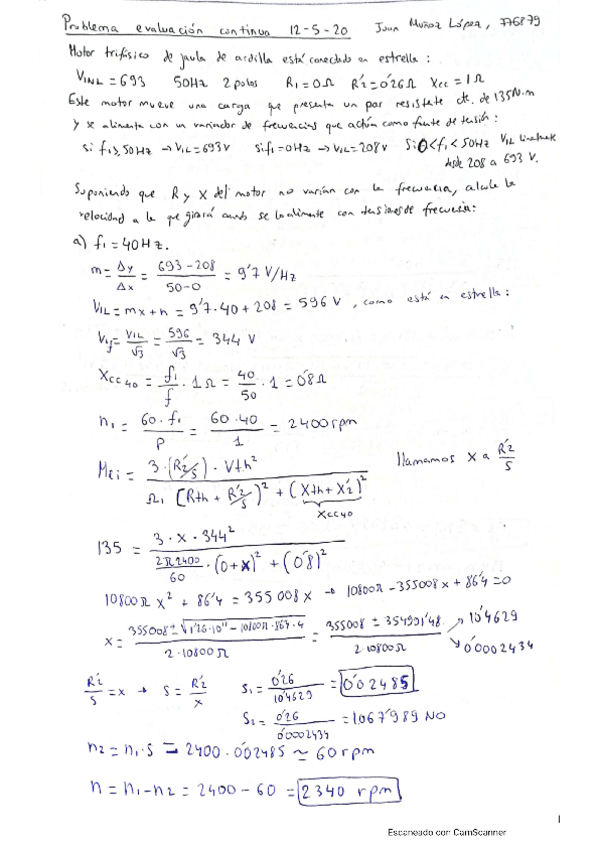 Problema evaluación continua 12-5-20 Juan Muñoz López, 776879
Motor trifásico de jaula de ardilla está conectado en estrella:
V1NL = 693 50Hz 2 polos R1 = 0Ω R2' = 0'26Ω Xcc = 1Ω
Este motor mueve una carga que presenta un par resistente cte. de 135N·m
y se alimenta con un variador de frecuencias que actúa como fuente de tensión:
si f1≥50Hz → V1L=693V si f1=0Hz → V1L=208V Si 0<f1<50Hz V1L linealmente
desde 208 a 693 V.
Suponiendo que R y X del motor no varían con la frecuencia, calcule la
velocidad a la que girará cuando se lo alimente con tensiones de frecuencia:
a) f1 = 40Hz.
m = Δy/Δx = (693-208)/(50-0) = 9'7 V/Hz
V1L = mx+n = 9'7·40 + 208 = 596 V, como está en estrella:
V1f = V1L/√3 = 596/√3 = 344 V
Xcc40 = f1/f · 1Ω = 40/50 · 1 = 0'8Ω
n1 = 60·f1/P = 60·40/1 = 2400rpm
Mei = 3·(R2'/s)·Vth² / Ω1 [Rth + R2'/s)² + (Xth + X2')² llamamos X a R2'/s
Xcc40
135 = 3·x·344² / (2π2400/60 · (0+x)² + (0'8)²
10800π x² + 86'4 = 355008x → 10800π - 355008x + 86'4 = 0
x = (355008 ± √(1'26·10¹¹ - 10800π·86'4·4)) / (2·10800π) = (355008 ± 354901'48) / (2·10800π) 10'4629
0'0002434
R2'/s = x → s = R2'/x s1 = 0'26/10'4629 = 0'02485
s2 = 0'26/0'0002434 = 1067'989 NO
n2 = n1·s = 2400·0'02485 ≃ 60rpm
n = n1-n2 = 2400 - 60 = 2340 rpm
1
Escaneado con CamScanner